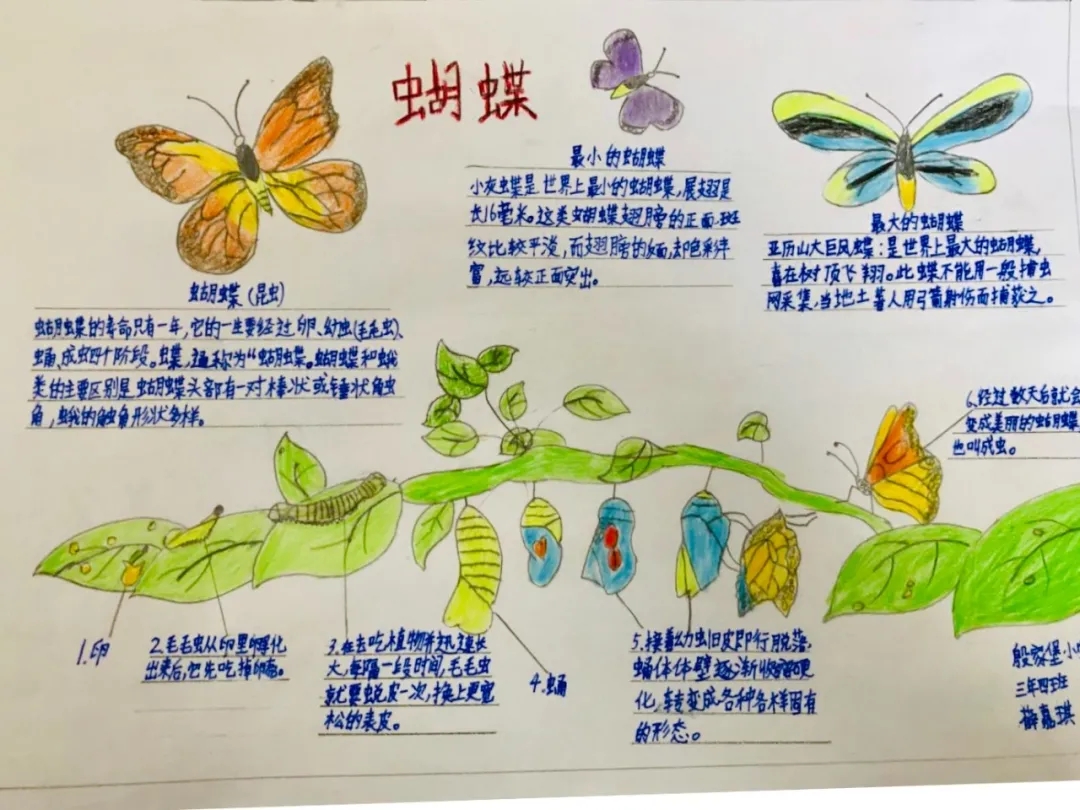 蝴蝶
最小的蝴蝶
小灰蝶是世界上最小的蝴蝶,展翅是
长16毫米。这类蝴蝶翅膀的正面,斑
纹比较平淡,而翅膀的面,却色彩丰
富,远较正面突出。
最大的蝴蝶
亚历山大巨凤蝶:是世界上最大的蝴蝶,
喜在树顶飞翔。此蝶不能用一般捕虫
网采集,当地土著人用弓箭射伤而捕获之。
蝴蝶(昆虫)
蝴蝶的寿命只有一年,它的一生要经过卵、幼虫(毛毛虫)、
蛹、成虫四个阶段。蝶,通称为“蝴蝶。蝴蝶和蛾
类的主要区别是蝴蝶头部有一对棒状或锤状触
角,蛾的触角形状多样。
1.卵
2.毛毛虫从卵里孵化
出来后,它先吃掉卵壳。
3.在去吃植物并迅速长
大,每隔一段时间,毛毛虫
就要蜕皮一次,换上更宽
松的表皮。
4.蛹
5.接着幼虫旧皮即行脱落,
蛹体体壁逐渐收缩硬
化,转变成各种各样固有
的形态。
6.经过数天后就会
变成美丽的蝴蝶
也叫成虫。
殷家堡小
三年四班
梅嘉琪